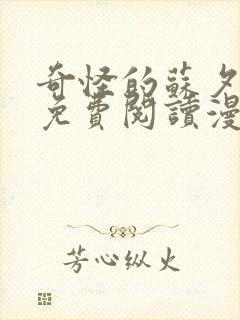 奇怪的蘇夕
免費閱讀漫
芳心纵火